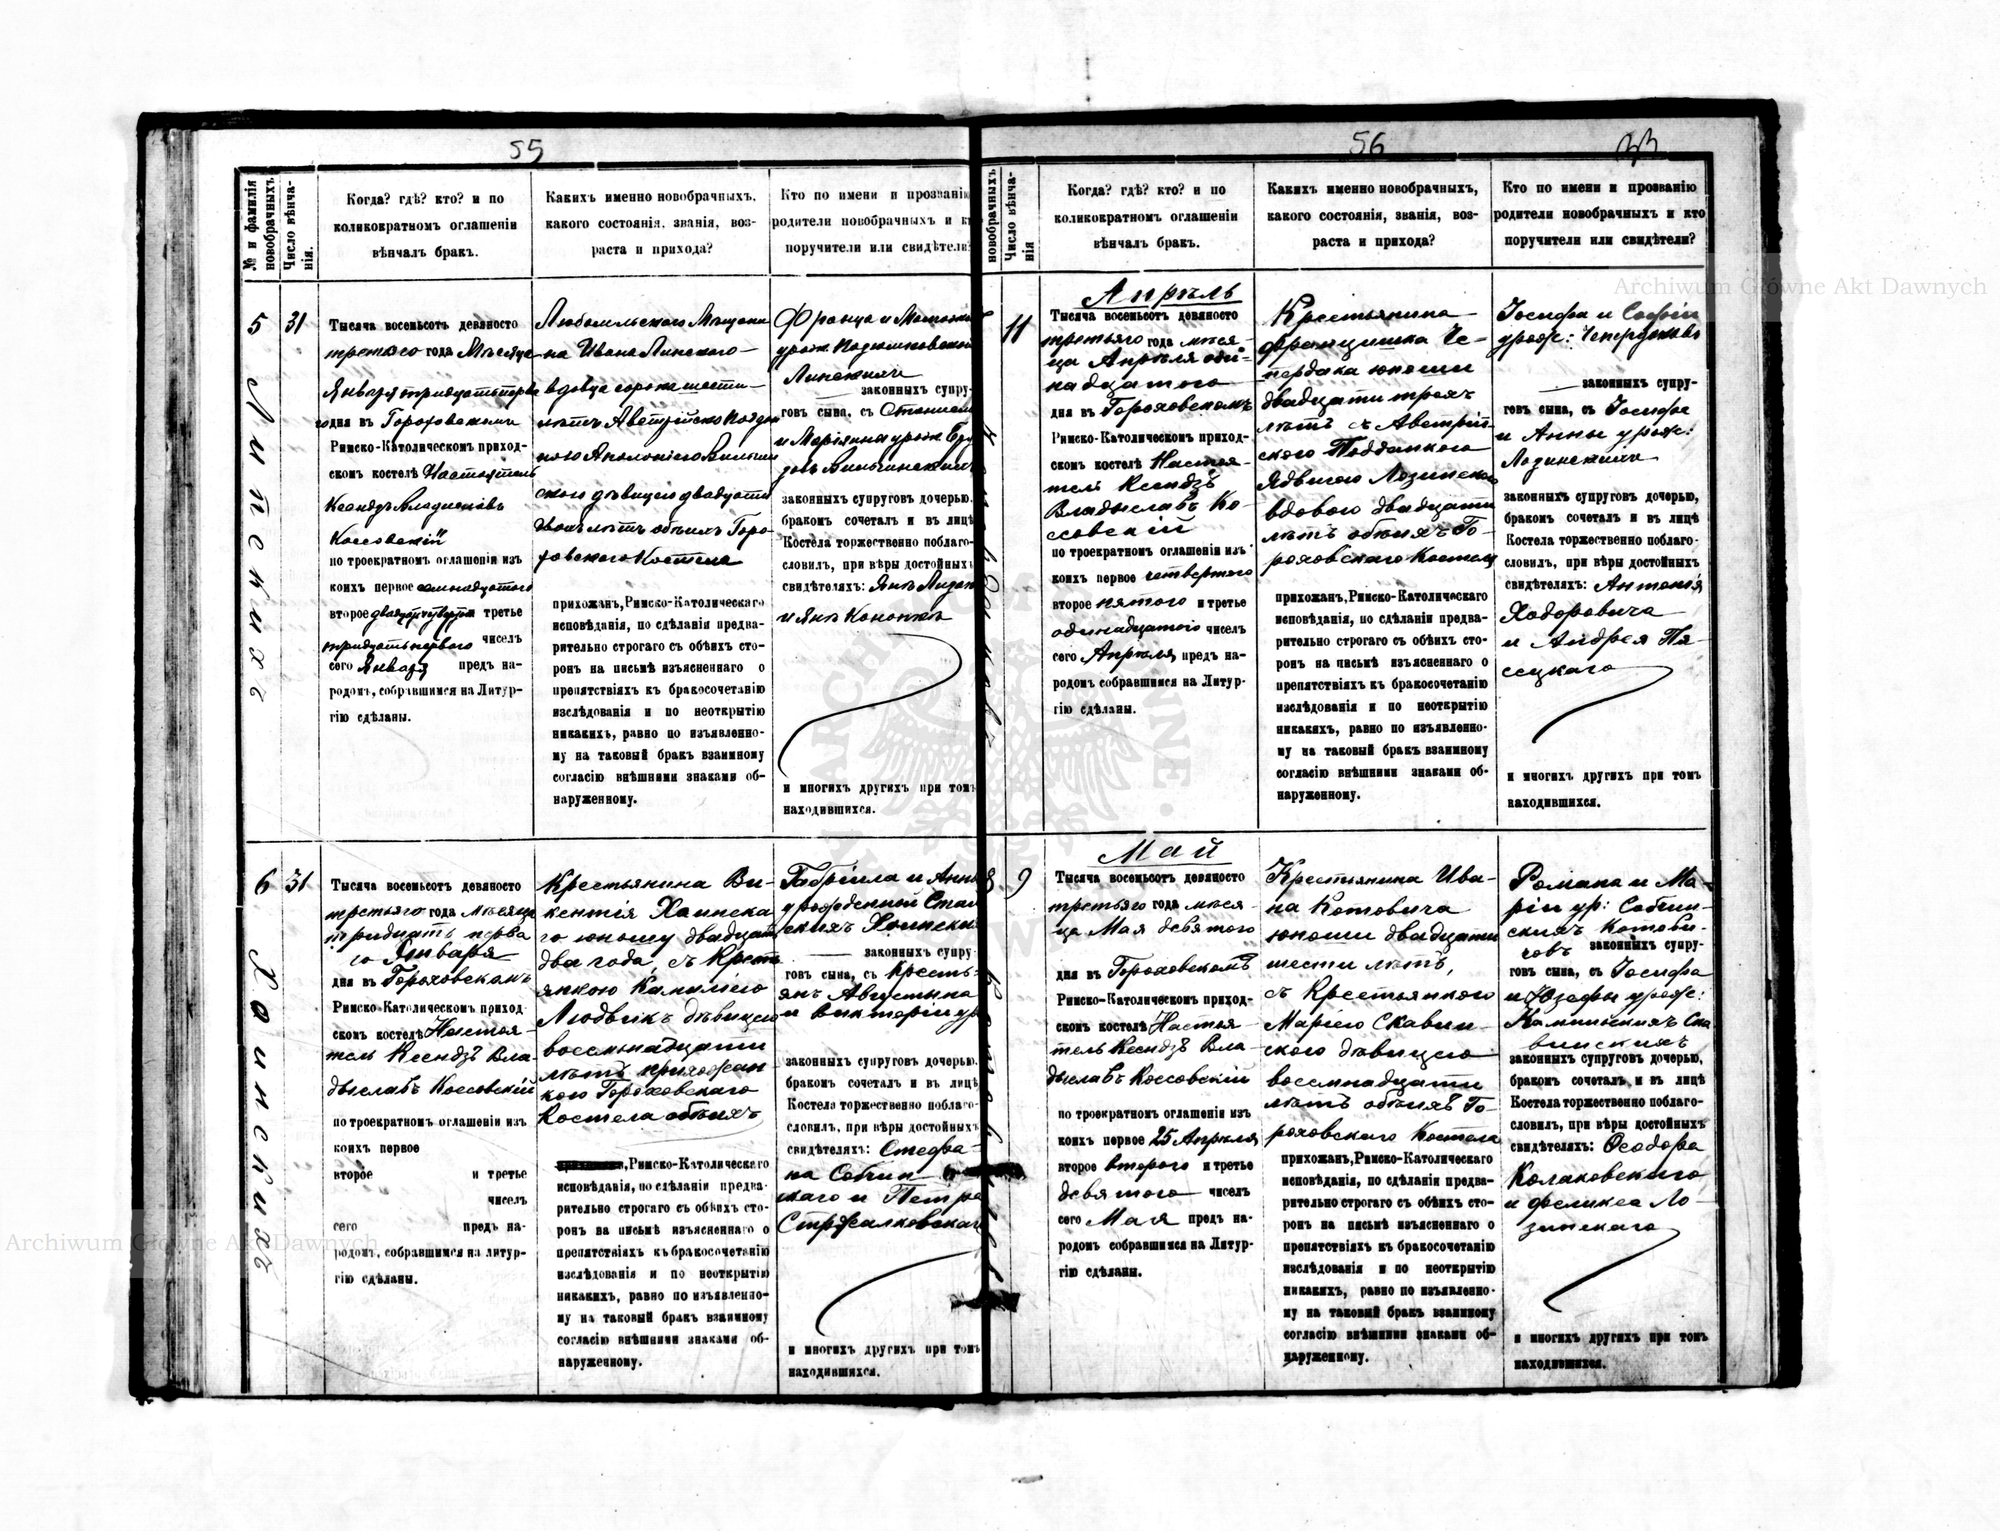 55
№ и фамилія новобрачныхъ
Число вѣнча-
нія.
Когда? гдѣ? кто? и по
коликократномъ оглашеніи
вѣнчалъ бракъ.
Какихъ именно новобрачныхъ,
какого состоянія, званія, воз-
раста и прихода?
Кто по имени и прозванію
родители новобрачныхъ и к
поручители или свидѣтели?
5
31
Липскихъ
Тысяча восемьсотъ девяносто
третьяго года Мѣсяца
Января тридцать перва
го дня въ Гороховскомъ
Римско-Католическомъ приход-
скомъ костелѣ Настоятель
Ксендзъ Владиславъ
Коссовскій
по троекратномъ оглашеніи изъ
коихъ первое семнадцатого
второе двадцать четверт третье
тридцать перваго чиселъ
сего Января предъ на-
родомъ, собравшимся на Литур-
гію сдѣланы.
Любомльскаго Мѣщани
на Ивана Липского
вдовца сорока шести
лѣтъ Австрійско поддан
ною Аполоніею Вильчин
ской дѣвицею двадцати
двохъ лѣтъ обѣихъ Горо
ховскаго Костела
прихожан, Римско-Католическаго
исповѣданія, по сдѣланіи предва-
рительно строгаго съ обѣихъ сто-
ронъ на письмѣ изъясненнаго о
препятствіяхъ къ бракосочетанію
изслѣдованія и по неоткрытію
никакихъ, равно по изъявленно-
му на таковый бракъ взаимному
согласію внѣшними знаками об-
наруженному.
Франца и
урож.
Липскихъ
законныхъ супру-
говъ сына, съ Станисл
и Маріянны урож.
Вильчинскихъ
законныхъ супруговъ дочерью.
бракомъ сочеталъ и въ лицѣ
Костела торжественно поблаго-
словилъ, при вѣры достойныхъ
свидѣтеляхъ: Янъ
и Янъ
и многихъ другихъ при томъ
находившихся.
6
31
Хоинскихъ
Тысяча восемьсотъ девяносто
третьяго года мѣсяца
тридцать перва
го Января
дня въ Гороховскомъ
Римско-Католическомъ приход
скомъ костелѣ Настоя-
тель Ксендзъ Вла
дыславъ Коссовскій
по троекратномъ оглашеніи изъ
коихъ первое
второе и третье
чиселъ
сего предъ на-
родомъ, собравшимся на литур-
гію сдѣланы.
Крестьянина Ви-
кентія Хоинска
го юношу двадцать
два года, съ Кресть
янкою Камиліею
Людвикъ дѣвицею
восемнадцати
лѣтъ прихожан
кою Гороховскаго
Костела обѣихъ
Римско-Католическаго
исповѣданія, по сдѣланіи предва-
рительно строгаго съ обѣихъ сто-
ронъ на письмѣ изъясненнаго о
препятствіяхъ къ бракосочетанію
изслѣдованія и по неоткрытію
никакихъ, равно по изъявленно-
му на таковый бракъ взаимному
согласію внѣшними знаками об-
наруженному.
Габріила и Анны
урожденной
Хоински
законныхъ супру-
говъ сына, съ Кресть-
янъ Августына
и Викторіи ур
законныхъ супруговъ дочерью.
бракомъ сочеталъ и въ лицѣ
Костела торжественно поблаго-
словилъ, при вѣры достойныхъ
свидѣтеляхъ: Стефа-
на Собчин
скаго и Петра
Стржалковскаг
и многихъ другихъ при томъ
находившихся.
56
новобрачныхъ
Число вѣнча-
нія
Когда? гдѣ? кто? и по
коликократномъ оглашеніи
вѣнчалъ бракъ.
Какихъ именно новобрачныхъ,
какого состоянія, званія, воз-
раста и прихода?
Кто по имени и прозванію
родители новобрачныхъ и кто
поручители или свидѣтели?
11
Апрѣль
Тысяча восемьсотъ девяносто
третьяго года мѣся-
ца Апрѣля оди-
надцатого
дня въ Гороховскомъ
Римско-Католическомъ приход-
скомъ костелѣ Настоя-
тель Ксендзъ
Владыславъ Ко-
ссовскій
по троекратномъ оглашеніи изъ
коихъ первое четвертого
второе пятого и третье
одинадцатого чиселъ
сего Апрѣля предъ на-
родомъ собравшимся на Литур-
гію сдѣланы.
Крестьянина
Францишка Че-
пердака юноши
двадцати трехъ
лѣтъ съ Австрій-
ского Подданкого
Ядвигою Лозинско
вдового двадцати
лѣтъ обѣихъ Го-
роховскаго Костела
прихожанъ, Римско-Католическаго
исповѣданія, по сдѣланіи предва-
рительно строгаго съ обѣихъ сто-
ронъ на письмѣ изъясненнаго о
препятствіяхъ къ бракосочетанію
изслѣдованія и по неоткрытію
никакихъ, равно по изъявленно-
му на таковый бракъ взаимному
согласію внѣшними знаками об-
наруженному.
Іосифа и Софіи
урож:
законныхъ супру-
говъ сына, съ Іосифа
и Анны урож:
Лозинскихъ
законныхъ супруговъ дочерью,
бракомъ сочеталъ и въ лицѣ
Костела торжественно поблаго-
словилъ, при вѣры достойныхъ
свидѣтеляхъ: Антонія
Ходоровича
и Андрея Пя-
сецкаго
и многихъ другихъ при томъ
находившихся.
8
9
Май
Тысяча восемьсотъ девяносто
третьяго года мѣся-
ца Мая девятого
дня въ Гороховскомъ
Римско-Католическомъ приход-
скомъ костелѣ Настоя
тель Ксендзъ Вла
дыславъ Коссовскій
по троекратномъ оглашеніи изъ
коихъ первое 25 Апрѣля
второе второго и третье
девятого чиселъ
сего Мая предъ на-
родомъ собравшимся на Литур-
гію сдѣланы.
Крестьянина Ива-
на Котовича
юноши двадцати
шести лѣтъ,
съ Крестьянкого
Маріею Скавин-
ского дѣвицею
восемнадцати
лѣтъ обѣихъ Го-
роховскаго Костела
прихожанъ, Римско-Католическаго
исповѣданія, по сдѣланіи предва-
рительно строгаго съ обѣихъ сто-
ронъ на письмѣ изъясненнаго о
препятствіяхъ къ бракосочетанію
изслѣдованія и по неоткрытію
никакихъ, равно по изъявленно-
му на таковый бракъ взаимному
согласію внѣшними знаками об-
наруженному.
Романа и Ма-
ріи ур: Собчин-
скихъ Котови-
човъ законныхъ супру-
говъ сына, съ Іосифа
и Юзефы урож:
Каминскихъ Ска
винскихъ
законныхъ супруговъ дочерью,
бракомъ сочеталъ и въ лицѣ
Костела торжественно поблаго-
словилъ, при вѣры достойныхъ
свидѣтеляхъ: Ѳеодора
Колаковскаго
и Феликса Ло-
зинскаго
и многихъ другихъ при томъ
находившихся.
Archiwum Główne Akt Dawnych
Archiwum Główne Akt Dawnych